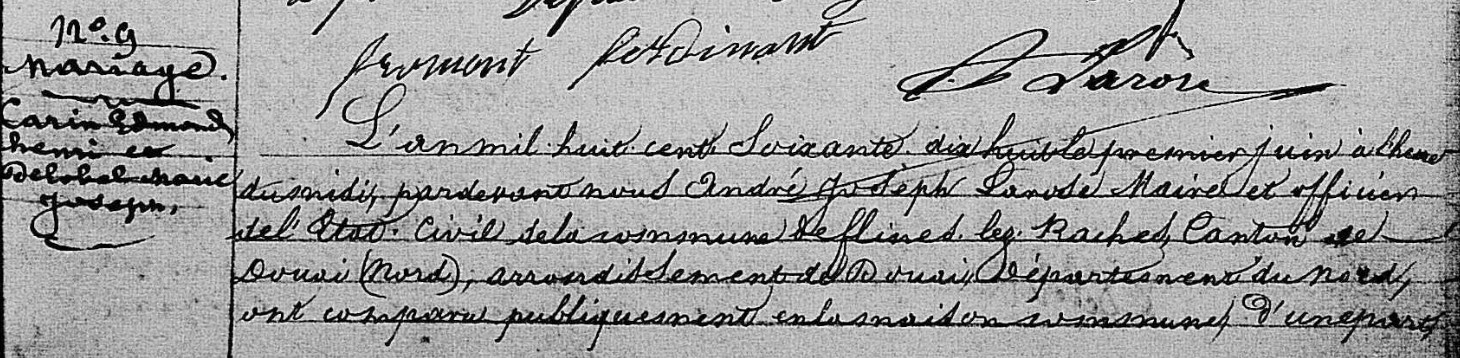 N°. 9
Mariage.
Carin Edmond
henri et
Delobel Marie
Joseph.
fromont ferdinant
L'an mil huit cent Soixante dix huit le premier juin à l'heure
du midi, pardevant nous André Joseph Larose Maire et officier
de l'Etat Civil de la commune de flines lez Raches, Canton de
Douai (Nord), arrondissement de Douai, Département du Nord,
ont comparu publiquement en la maison commune, D'une part,